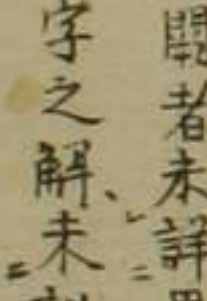 者未詳
字之解未